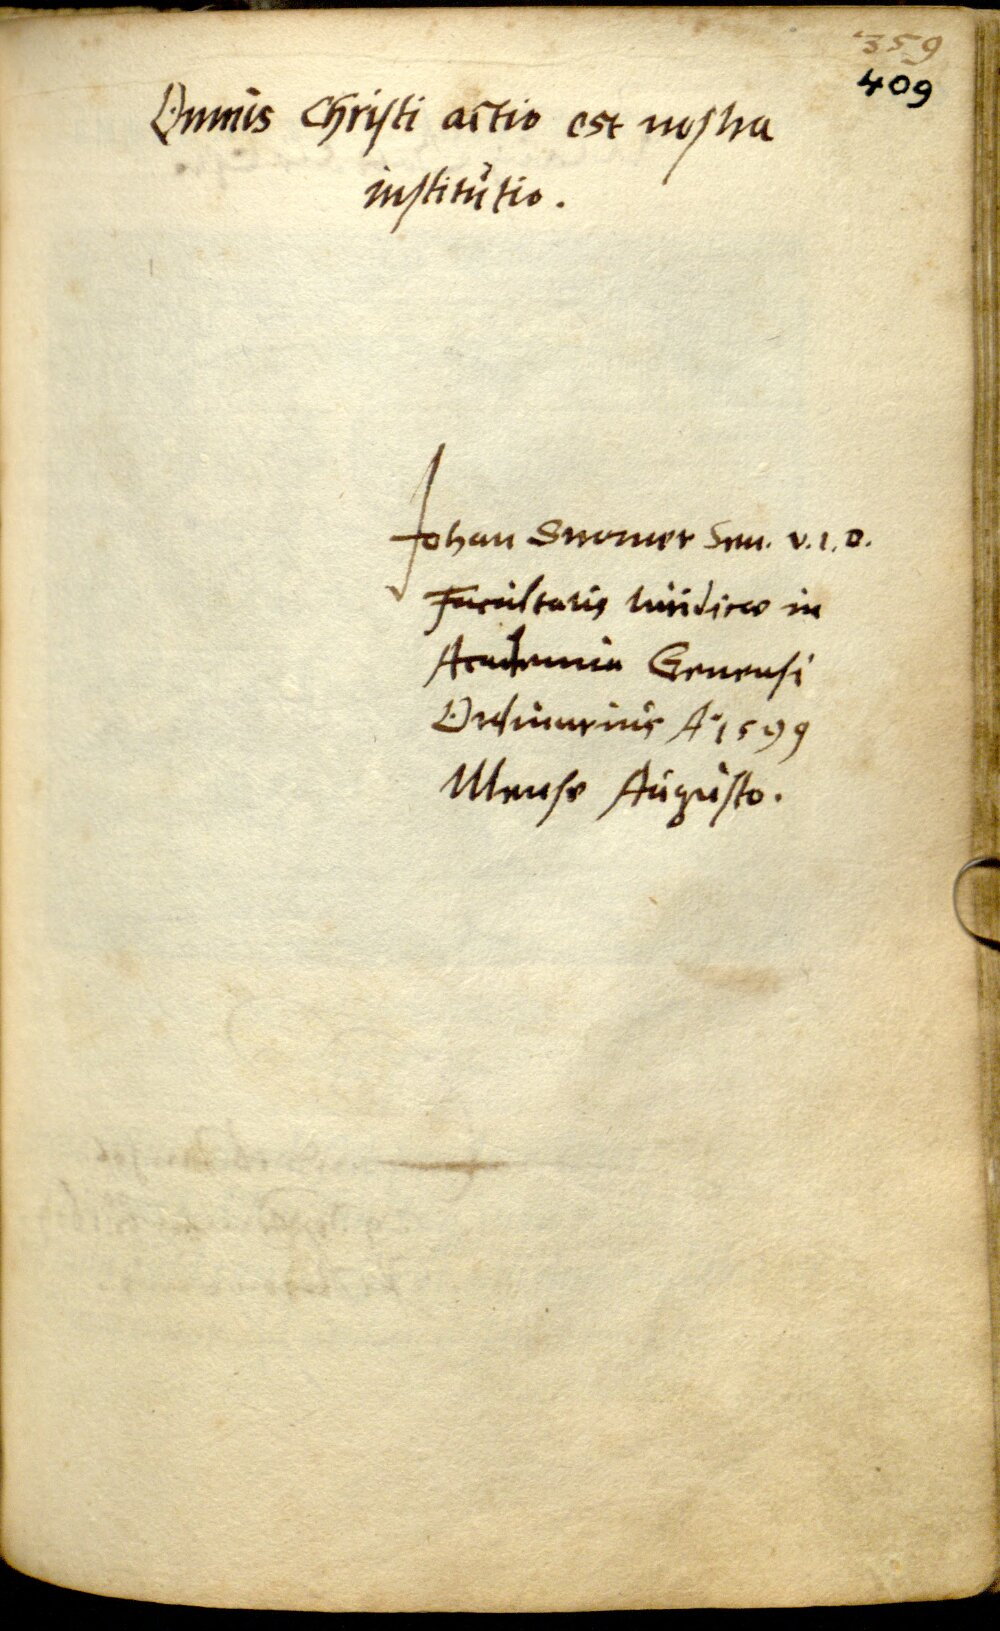 359
409
Omnis Christi actio est nostra
institutio.
Johan Stromer Sen. V.I.D.
Facultatis Iuridicae in
Academia Genensi
Ordinarius A° 1599
Mense Augusto.